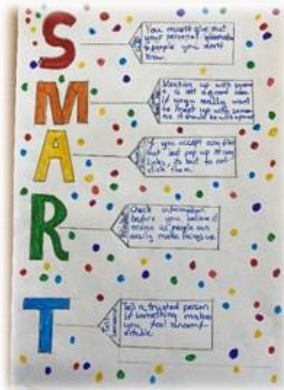 S
You mustn't give out
your personal information
to people you don't
know.
M
Meeting up with
is not a good idea
if you really want
to meet up with
it should be with
A
If you accept
but pop up
links, its best to not
click them.
R
Check information
before you believe it
online as people can
easily make things up.
T
Tell
Someone
Tell a trusted person
if something makes
you feel uncomf-
ortable.